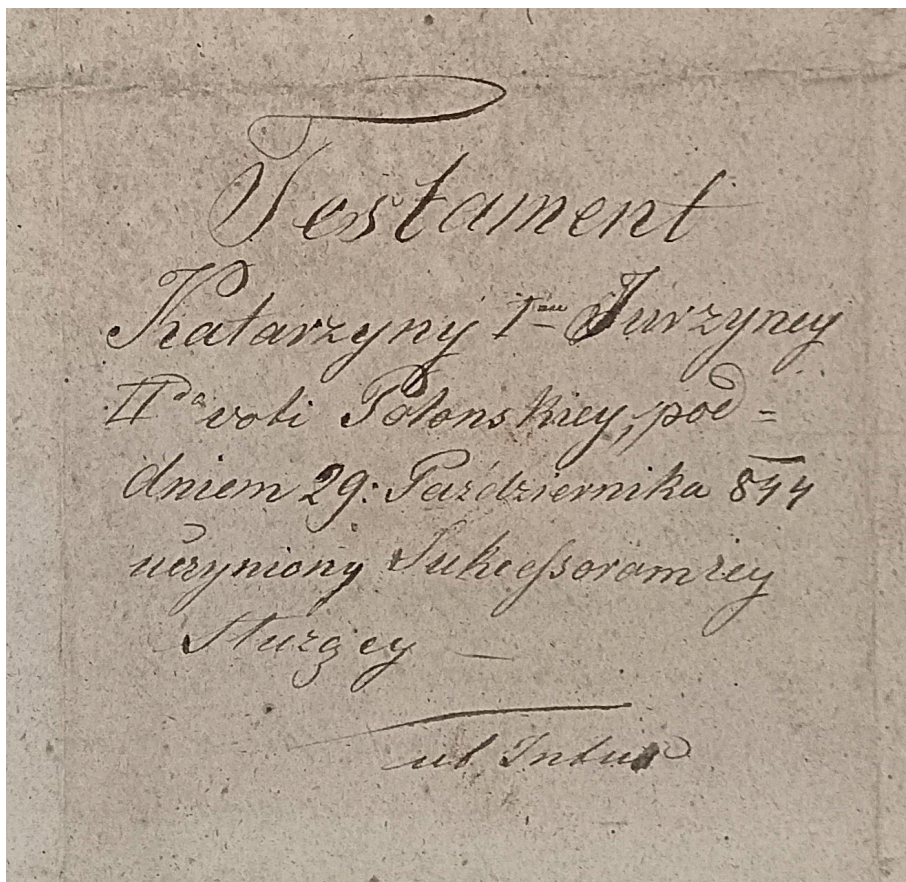 Testament
Katarzyny I<sup>mo</sup> Jurzyney
II<sup>da</sup> voti Polonskiey, pod =
dniem 29: Października 844
uczyniony Sukcessoram iey
Służący —
ut Intus